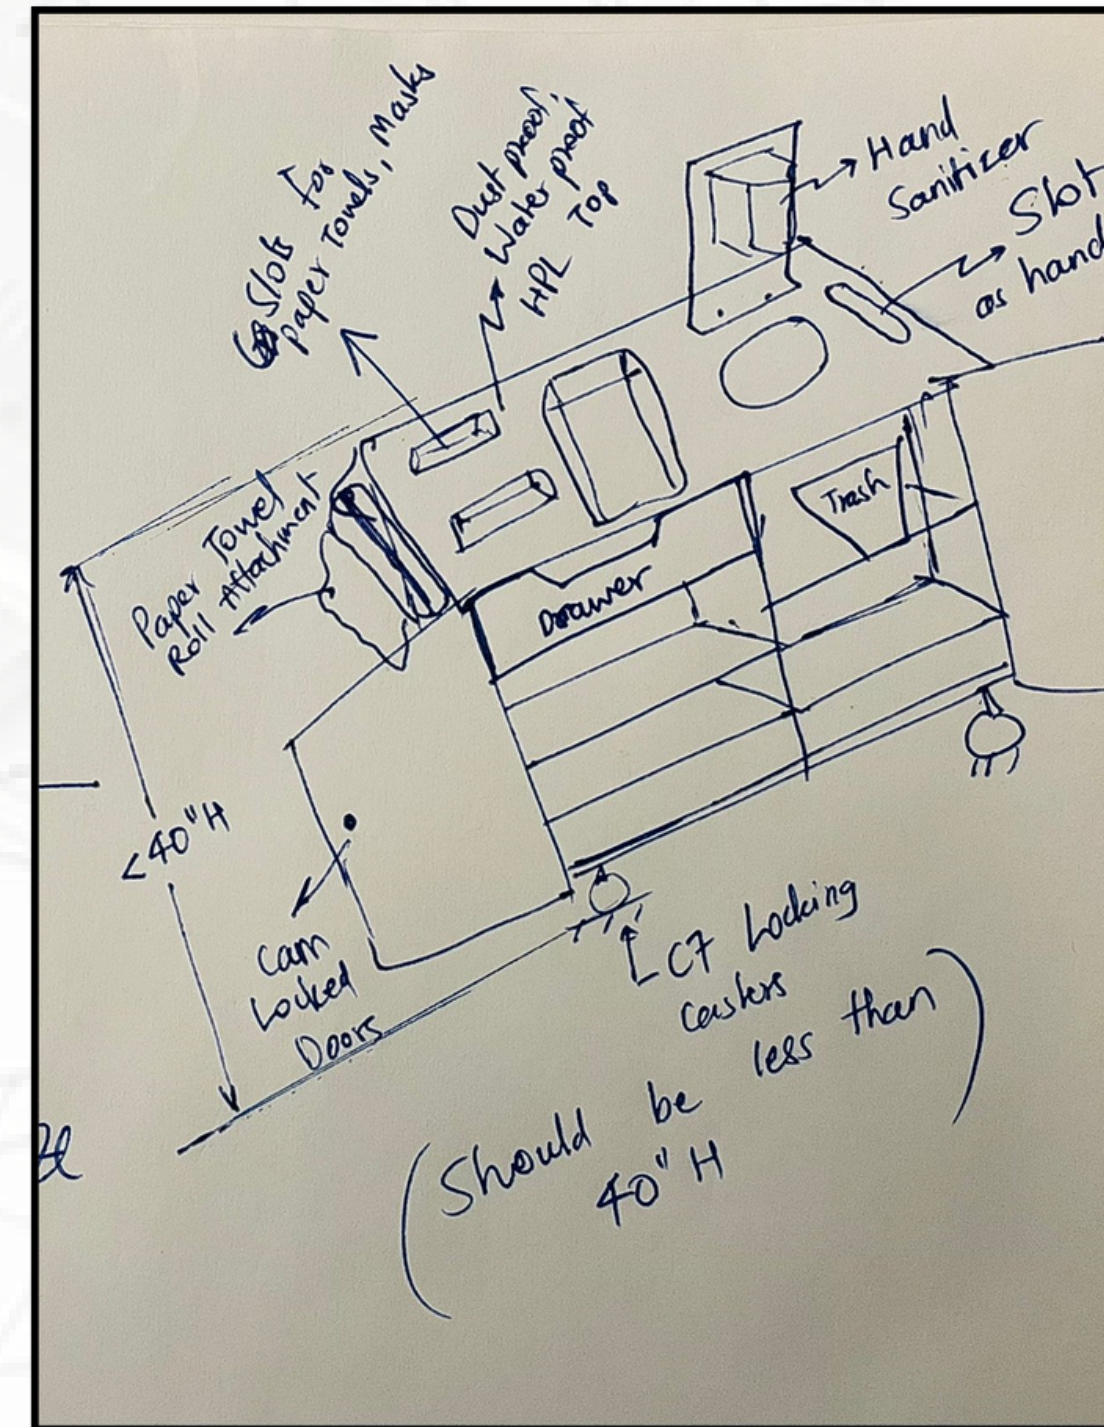 Slots For
paper Towels, Masks
Dust proof,
Water proof
HPL Top
Hand
Sanitizer
Slot
as hand
Paper Towel
Roll Attachment
Drawer
Trash
<40"H
Cam
Locked
Doors
C7 Locking
casters
(Should be less than
40" H)